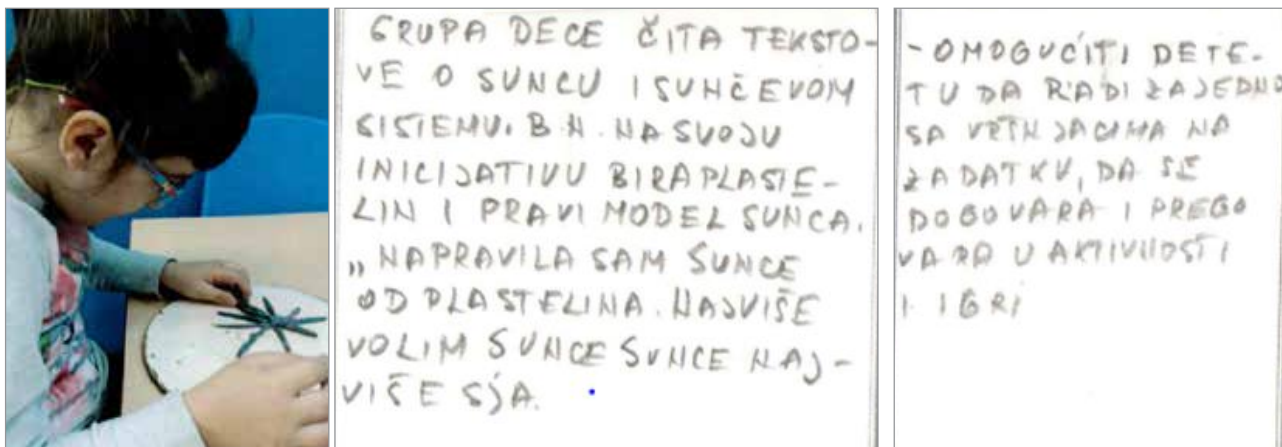 GRUPA DECE ČITA TEKSTO-
VE O SUNCU I SUNČEVOM
SISTEMU. B.N. NA SVOJU
INICIJATIVU BIRA PLASTE-
LIN I PRAVI MODEL SUNCA.
„NAPRAVILA SAM SUNCE
OD PLASTELINA. NAJVIŠE
VOLIM SUNCE SUNCE NAJ-
VIŠE SJA.
- OMOGUĆITI DETE-
TU DA RADI ZAJEDNO
SA VRŠNJACIMA NA
ZADATKU, DA SE
DOGOVARA I PREGO
VARA U AKTIVNOSTI
I IGRI